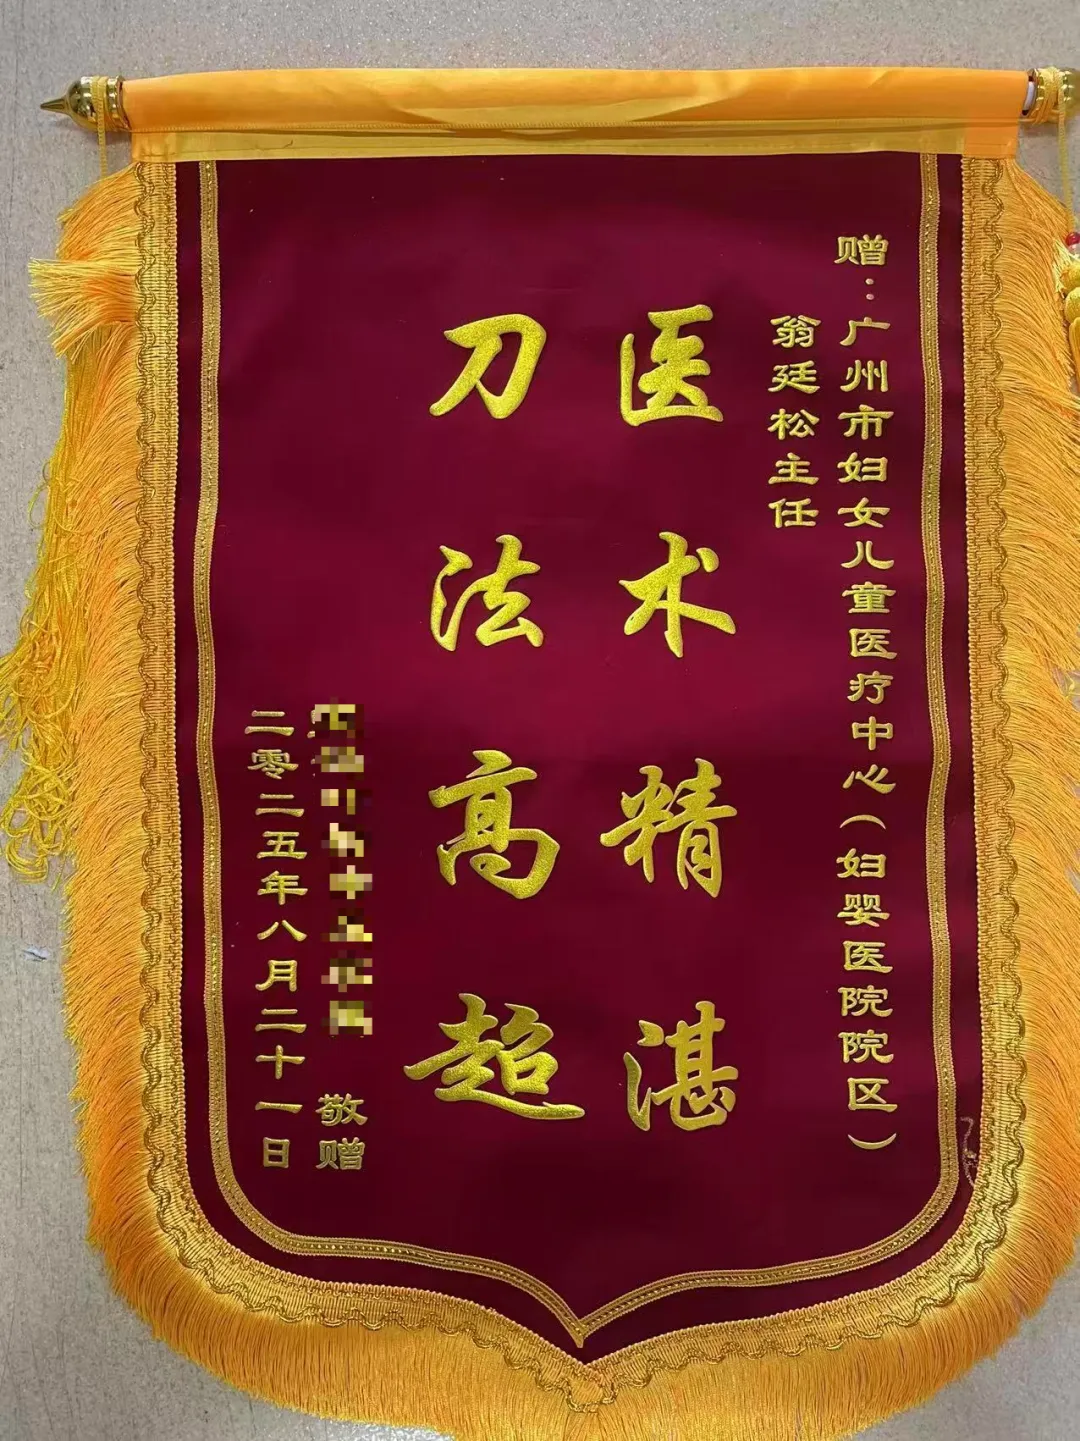 赠：广州市妇女儿童医疗中心（妇婴医院院区）
翁廷松主任
医术精湛
刀法高超
敬赠
二零二五年八月二十一日